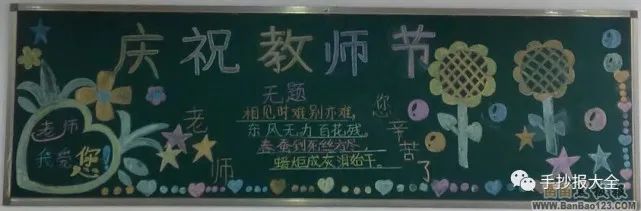 庆祝教师节
无题
相见时难别亦难,
东风无力百花残。
春蚕到死丝方尽,
蜡炬成灰泪始干。
老师
我爱您!
老师
您辛苦了
手抄报大全
www.BanBao123.com